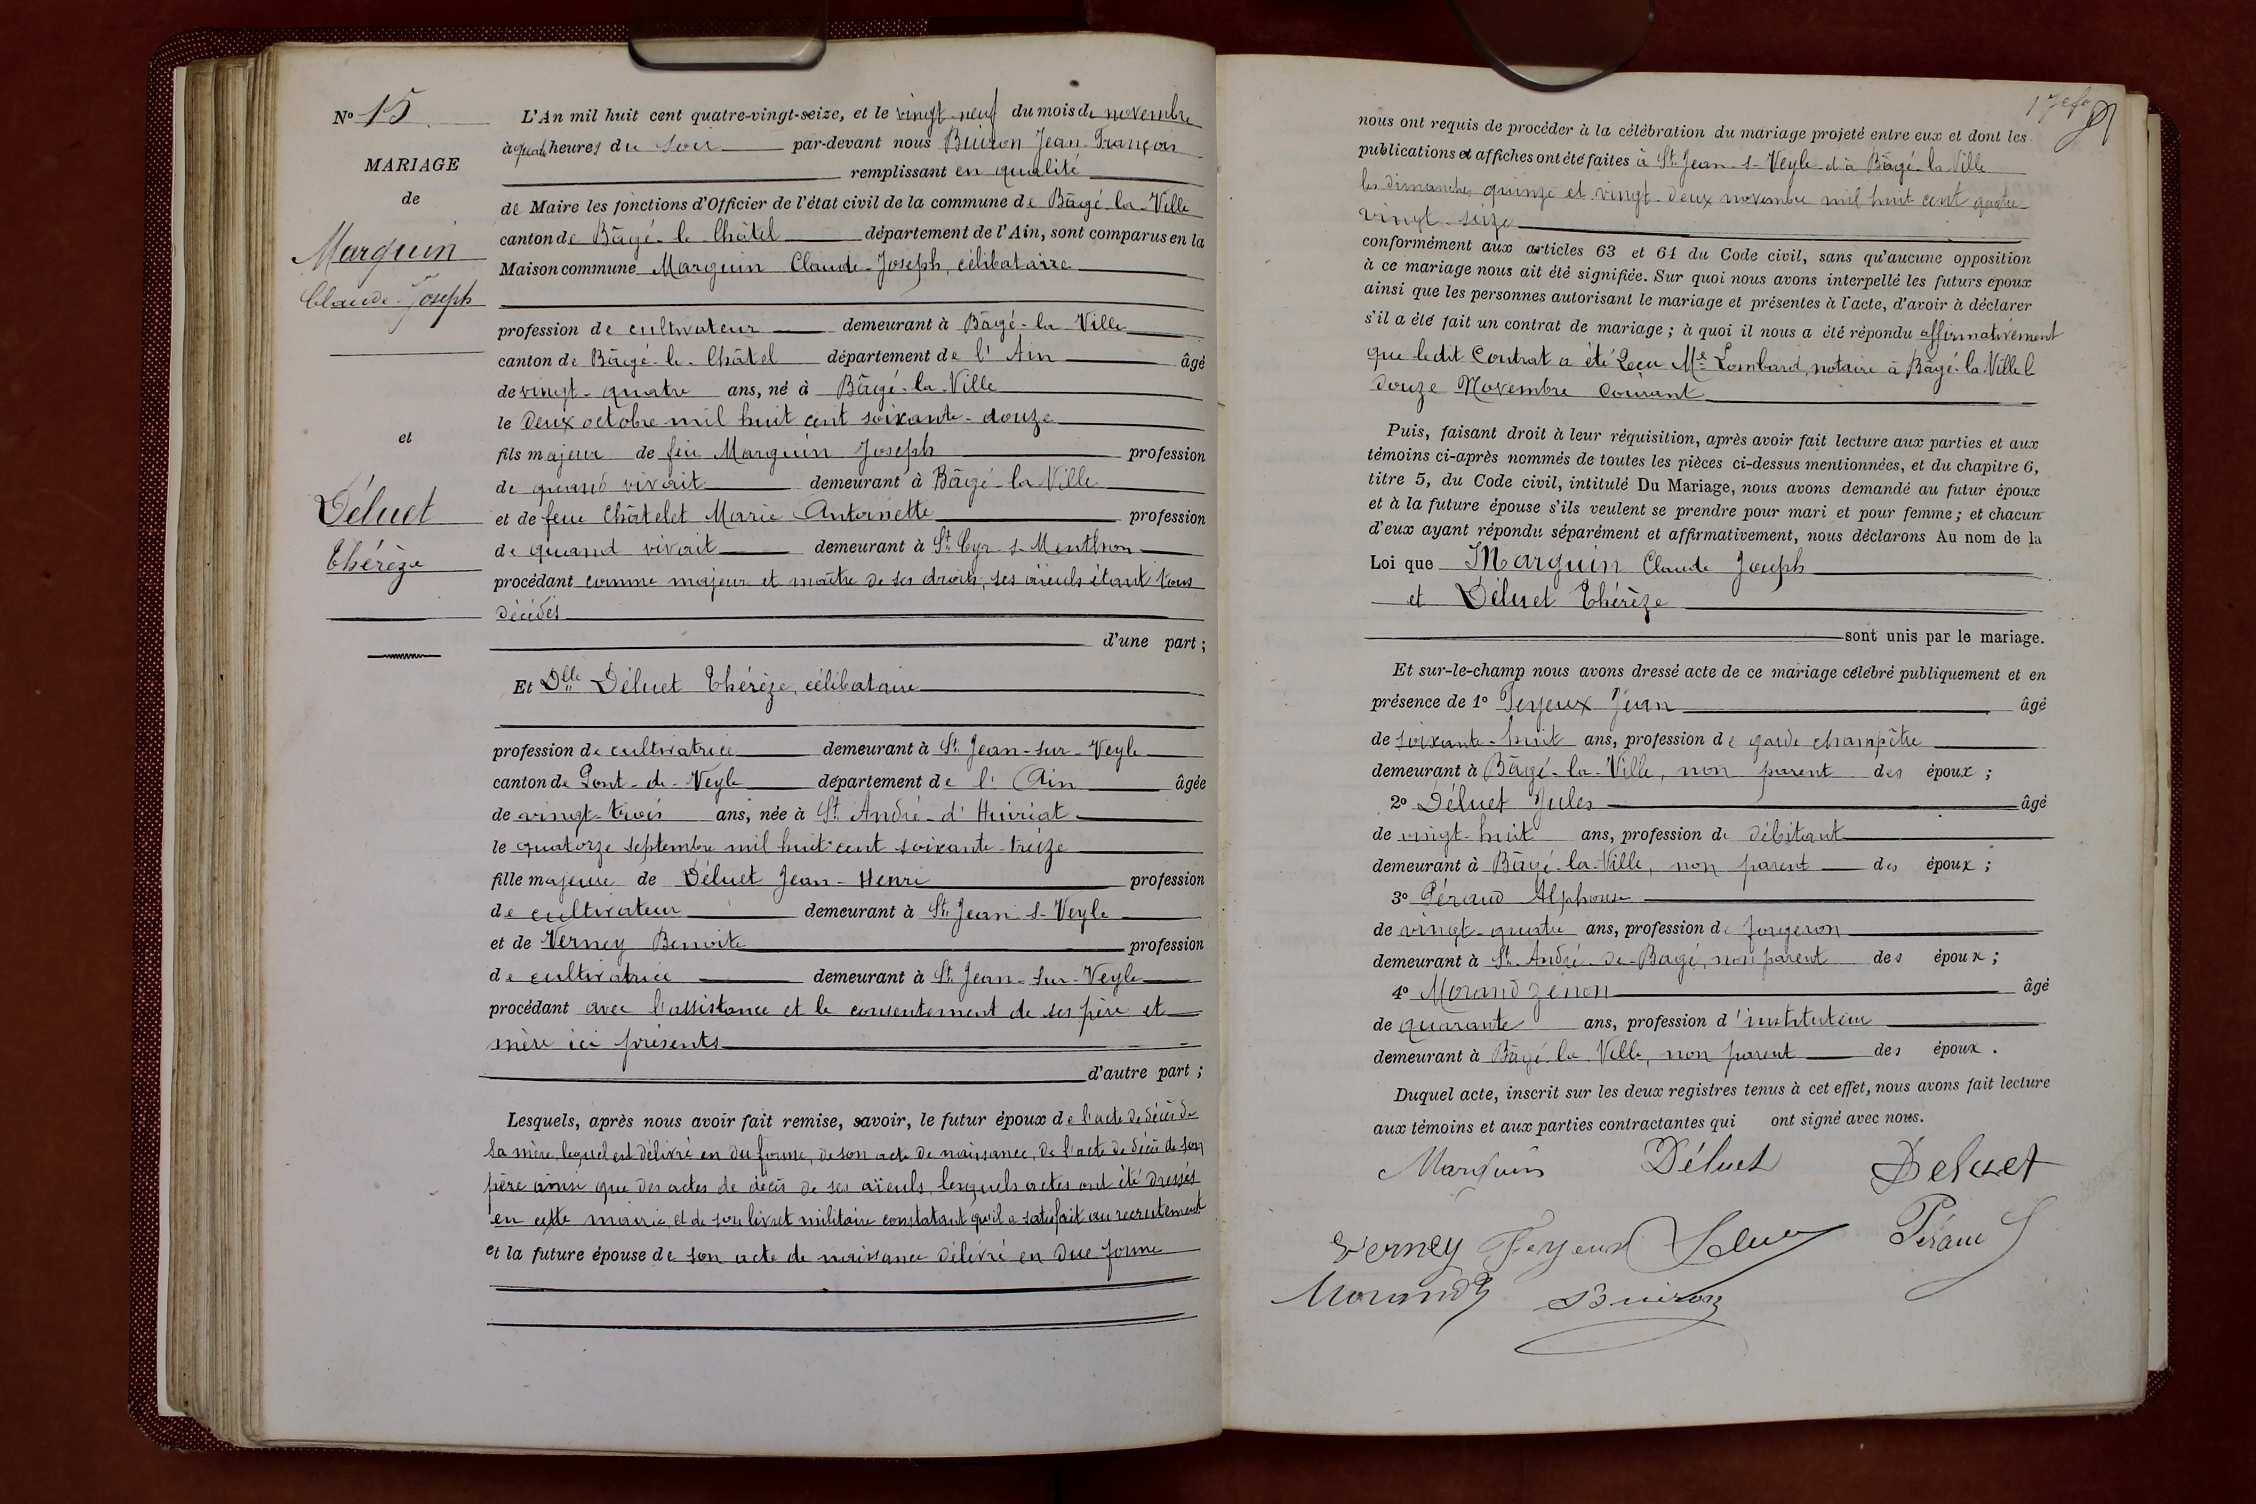 Nº 15
MARIAGE
de
Marguin
Claude-Joseph
et
Déluet
Thérèze
L'An mil huit cent quatre-vingt-seize, et le vingt-neuf du mois de novembre
à quatre heures du soir par-devant nous Buiron Jean François
remplissant en qualité
de Maire les fonctions d'Officier de l'état civil de la commune de Bâgé-la-Ville
canton de Bâgé-le-Châtel département de l'Ain, sont comparus en la
Maison commune Marguin Claude-Joseph, célibataire
profession de cultivateur demeurant à Bâgé-la Ville
canton de Bâgé-le-Châtel département de l'Ain âgé
de vingt-quatre ans, né à Bâgé-la-Ville
le deux octobre mil huit cent soixante-douze
fils majeur de feu Marguin Joseph profession
de quand vivait demeurant à Bâgé-la Ville
et de feue Châtelet Marie Antoinette profession
de quand vivait demeurant à St Cyr s-Menthon
procédant comme majeur et maître de ses droits, ses aïeuls étant tous
décédés
d'une part ;
Et Dlle Déluet Thérèze, célibataire
profession de cultivatrice demeurant à St Jean-sur-Veyle
canton de Pont-de-Veyle département de l'Ain âgée
de vingt-trois ans, née à St André-d'Huiriat
le quatorze septembre mil huit cent soixante-treize
fille majeure de Déluet Jean-Henri profession
de cultivateur demeurant à St Jean s-Veyle
et de Verney Benoite profession
de cultivatrice demeurant à St Jean-sur-Veyle
procédant avec l'assistance et le consentement de ses père et
mère ici présents
d'autre part ;
Lesquels, après nous avoir fait remise, savoir, le futur époux de l'acte de décès de
sa mère, lequel est délivré en du forme, de son acte de naissance, de l'acte de décès de son
père ainsi que des actes de décès de ses aïeuls, lesquels actes ont été dressés
en cette mairie, et de son livret militaire constatant qu'il a satisfait au recrutement
et la future épouse de son acte de naissance délivré en due forme
nous ont requis de procéder à la célébration du mariage projeté entre eux et dont les
publications et affiches ont été faites à St Jean-s-Veyle et à Bâgé la Ville
les dimanches quinze et vingt-deux novembre mil huit cent quatre-
vingt-seize
conformément aux articles 63 et 64 du Code civil, sans qu'aucune opposition
à ce mariage nous ait été signifiée. Sur quoi nous avons interpellé les futurs époux
ainsi que les personnes autorisant le mariage et présentes à l'acte, d'avoir à déclarer
s'il a été fait un contrat de mariage ; à quoi il nous a été répondu affirmativement
que ledit Contrat a été Reçu Me Lombard, notaire à Bâgé-la-Ville le
douze Novembre Courant
Puis, faisant droit à leur réquisition, après avoir fait lecture aux parties et aux
témoins ci-après nommés de toutes les pièces ci-dessus mentionnées, et du chapitre 6,
titre 5, du Code civil, intitulé Du Mariage, nous avons demandé au futur époux
et à la future épouse s'ils veulent se prendre pour mari et pour femme ; et chacun
d'eux ayant répondu séparément et affirmativement, nous déclarons Au nom de la
Loi que Marguin Claude Joseph
et Déluet Thérèze
sont unis par le mariage.
Et sur-le-champ nous avons dressé acte de ce mariage célébré publiquement et en
présence de 1º Feyeux Jean âgé
de soixante-huit ans, profession de garde champêtre
demeurant à Bâgé-la-Ville, non parent des époux ;
2º Déluet Jules âgé
de vingt-huit ans, profession de débitant
demeurant à Bâgé-la-Ville, non parent des époux ;
3º Péraud Alphonse
de vingt-quatre ans, profession de forgeron
demeurant à St André-de-Bagé, non parent des époux ;
4º Morand Zénon âgé
de quarante ans, profession d'instituteur
demeurant à Bâgé-la Ville, non parent des époux.
Duquel acte, inscrit sur les deux registres tenus à cet effet, nous avons fait lecture
aux témoins et aux parties contractantes qui ont signé avec nous.
Marguin Déluet Deluet
Verney Feyeux Péraud
Morand Buiron